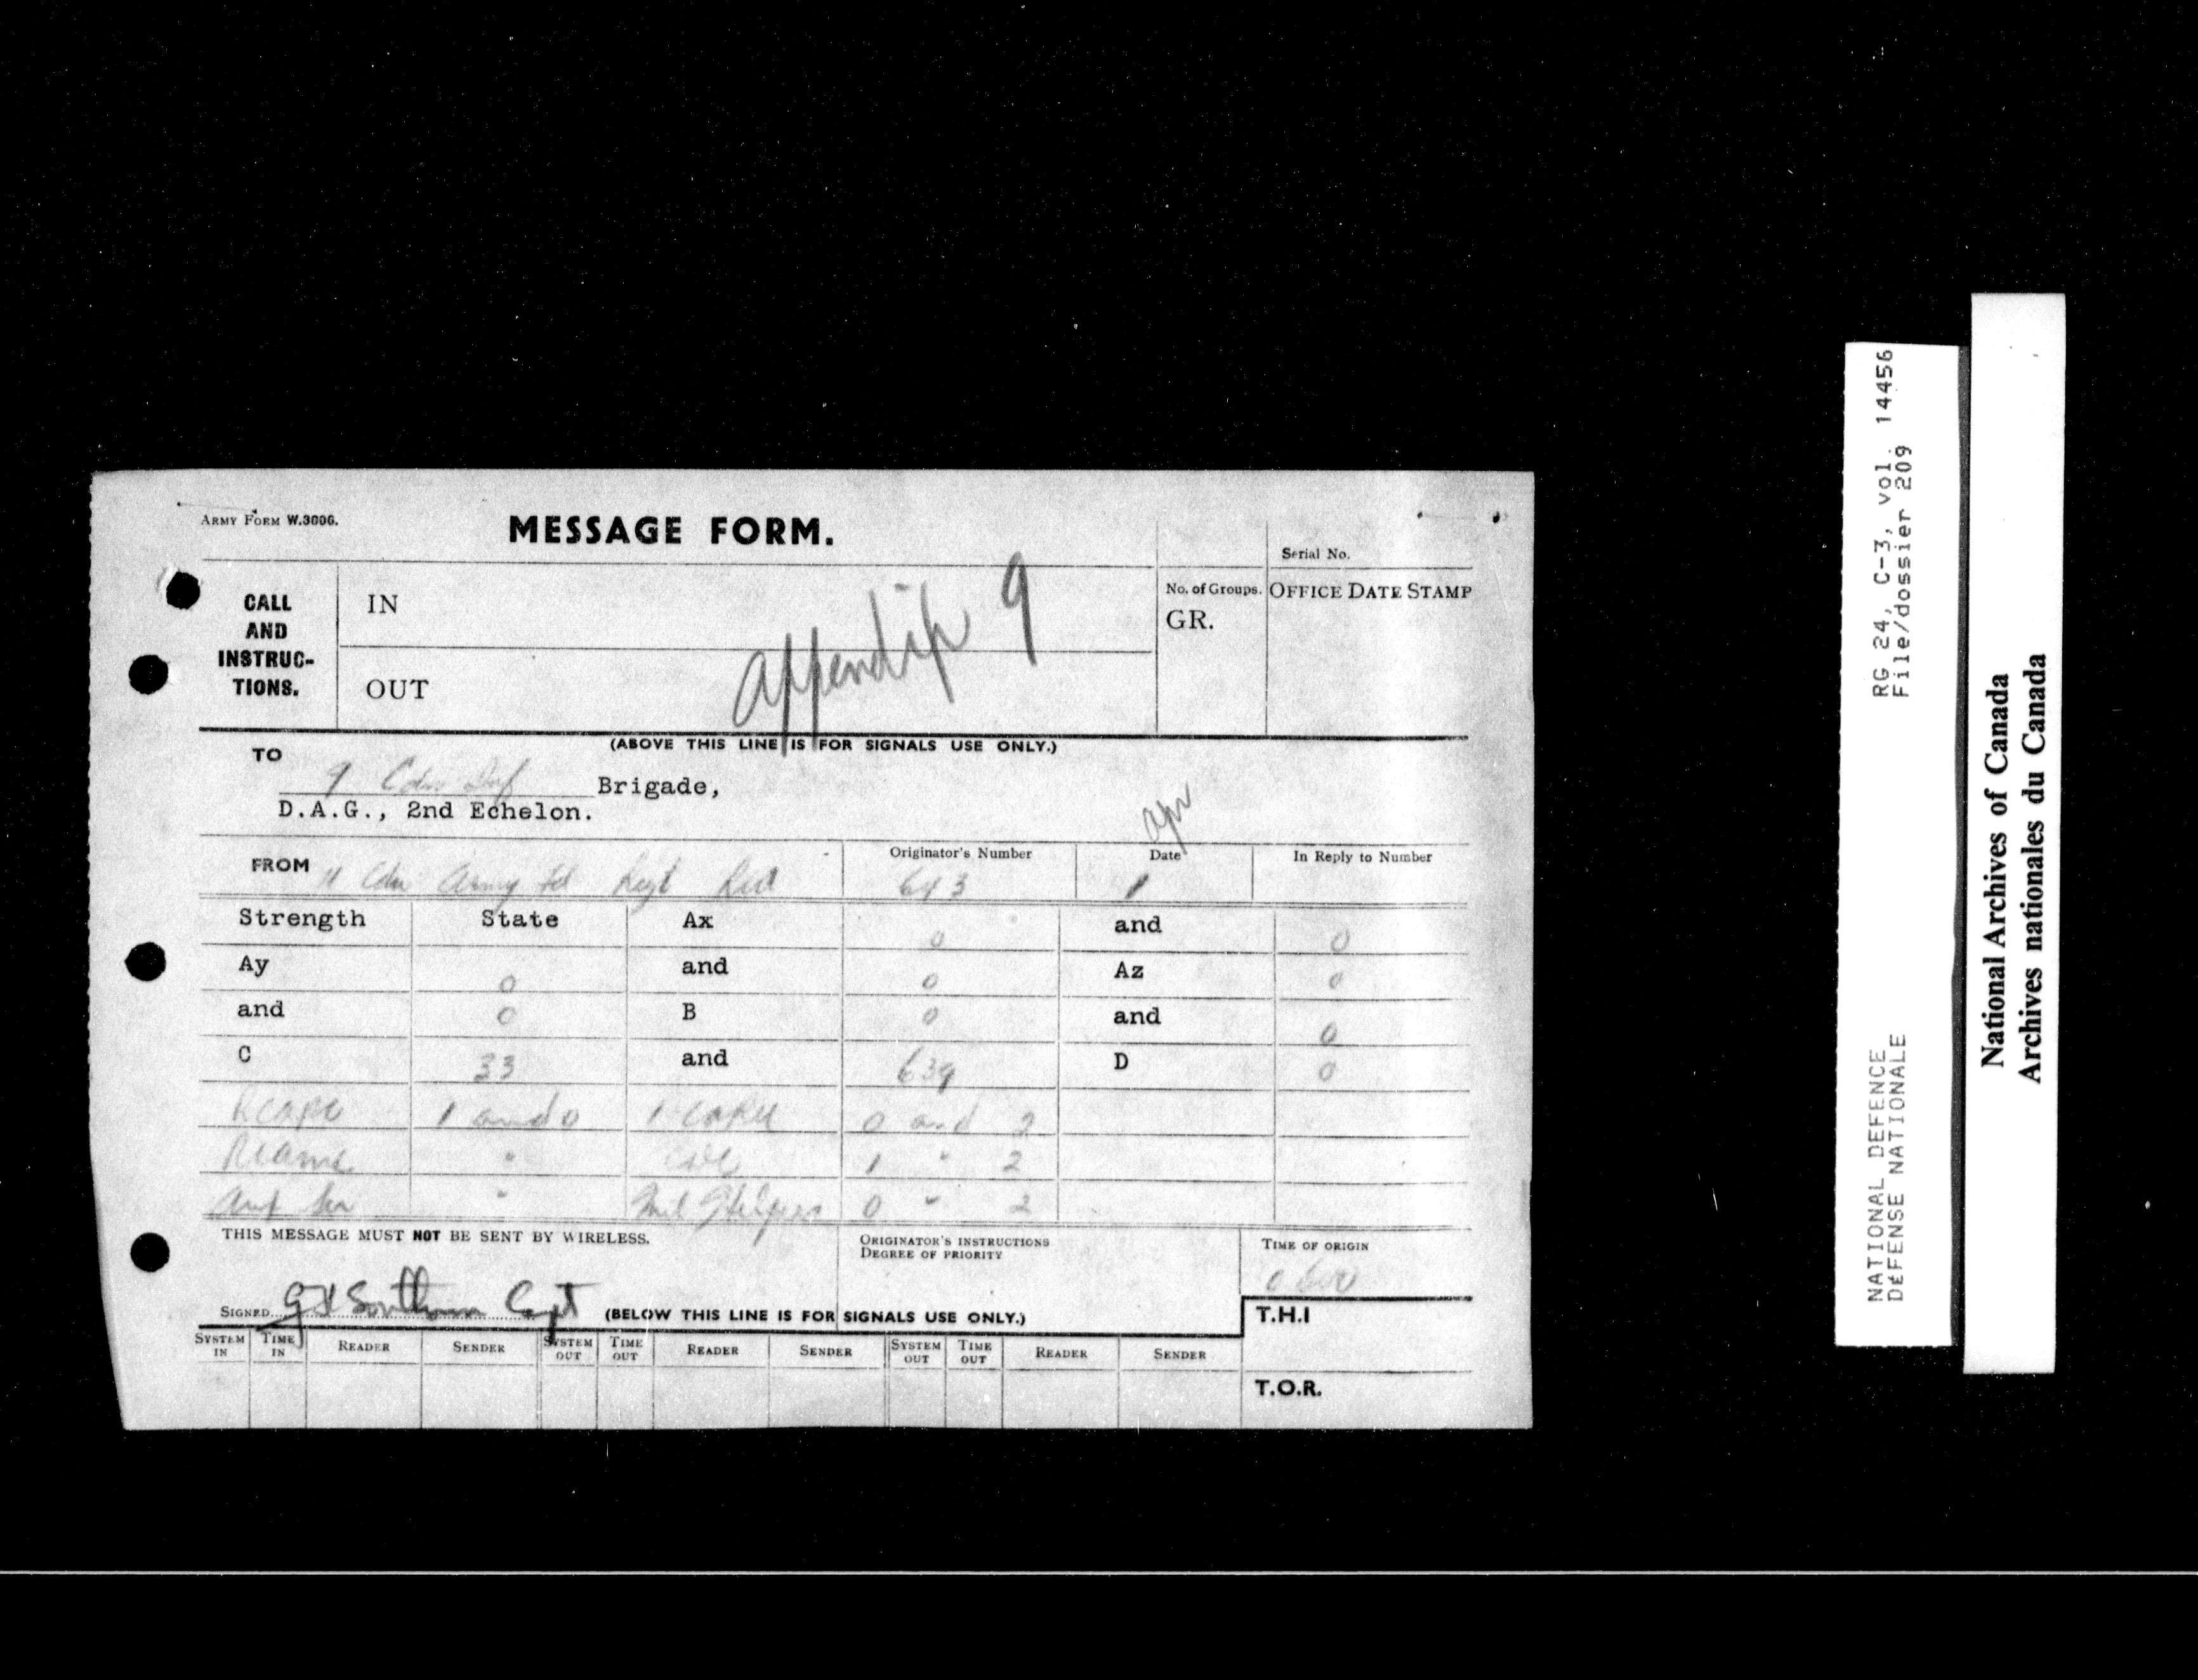 ARMY FORM W.3006.
MESSAGE FORM.
Serial No.
CALL AND INSTRUC-TIONS.
IN
OUT
Appendix 9
No. of Groups.
GR.
OFFICE DATE STAMP
(ABOVE THIS LINE IS FOR SIGNALS USE ONLY.)
TO
9 Cdn Inf Brigade,
D.A.G., 2nd Echelon.
Apr
FROM 11 Cdn Army Fd Regt RCA
Originator's Number 643
Date 1
In Reply to Number
Strength State Ax 0 and 0
Ay 0 and 0 Az 0
and 0 B 0 and 0
C 33 and 639 D 0
RCAPC 1 and 0 0 and 2
RCAMC " 1 " 2
" 0 " 2
THIS MESSAGE MUST NOT BE SENT BY WIRELESS.
ORIGINATOR'S INSTRUCTIONS
DEGREE OF PRIORITY
TIME OF ORIGIN
SIGNED Capt
(BELOW THIS LINE IS FOR SIGNALS USE ONLY.)
T.H.I
SYSTEM IN TIME IN READER SENDER SYSTEM OUT TIME OUT READER SENDER SYSTEM OUT TIME OUT READER SENDER
T.O.R.
RG 24, C-3, vol. 14456
File/dossier 209
NATIONAL DEFENCE
DÉFENSE NATIONALE
National Archives of Canada
Archives nationales du Canada